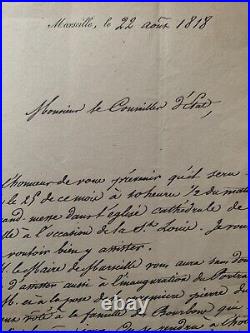 Marseille, le 22 août 1818
Monsieur le Conseiller d'État,
l'honneur de vous prévenir qu'il sera
le 25 de ce mois à 10 heures 1/2 du matin
grand-messe dans l'église cathédrale de
à l'occasion de la St Louis. Je vous
vouloir bien y assister.
le Maire de Marseille vous aura sans dou
d'assister aussi à l'inauguration du Portrai
et à la pose de la première pierre d
la famille de Bourbon qui
se rendra à